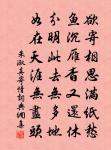 欲寄相思满纸愁
鱼沉雁杳又还休
分明此去无多地
如在天涯无尽头
朱淑真寄情词典网